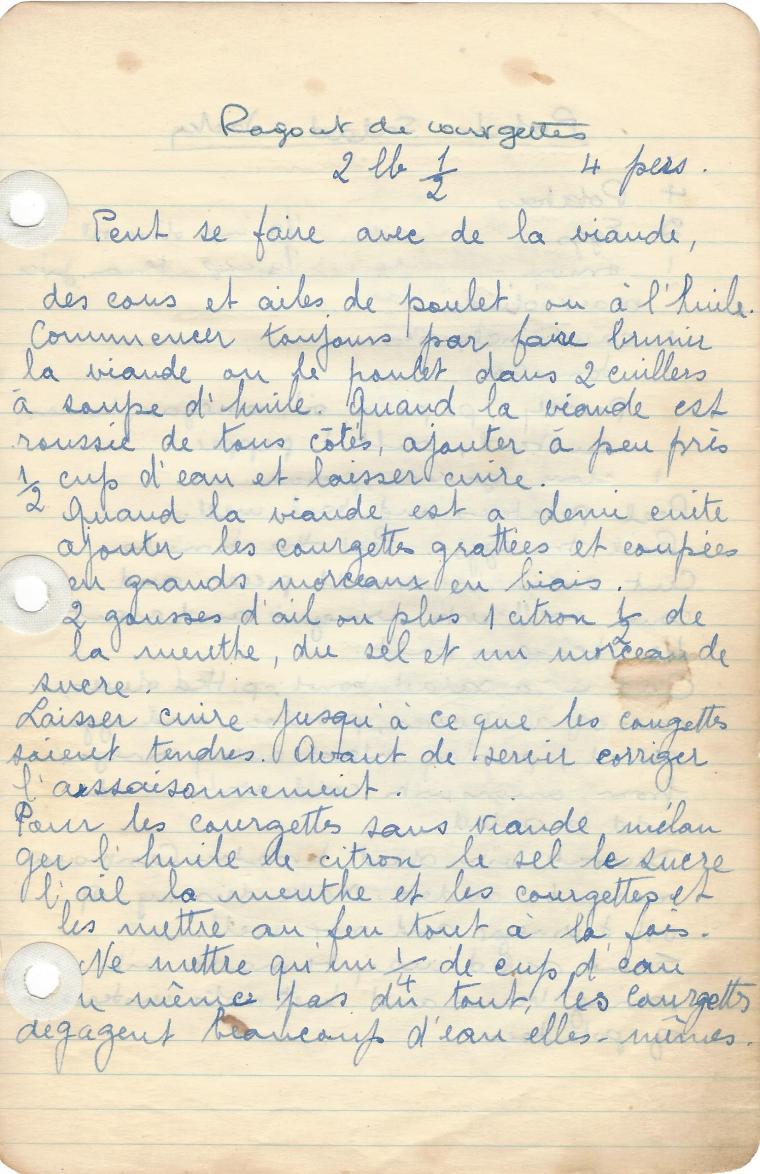 Ragout de courgettes
2 lb 1/2 4 pers.
Peut se faire avec de la viande,
des cous et ailes de poulet ou à l'huile.
Commencer toujours par faire brunir
la viande ou le poulet dans 2 cuillers
à soupe d'huile. Quand la viande est
roussie de tous côtés, ajouter à peu près
1/2 cup d'eau et laisser cuire.
Quand la viande est a demi cuite
ajouter les courgettes grattées et coupées
en grands morceaux en biais.
2 gousses d'ail ou plus 1 citron 1/2 de
la menthe, du sel et un morceau de
sucre.
Laisser cuire jusqu'à ce que les cougettes
soient tendres. Avant de servir corriger
l'assaisonnement.
Pour les courgettes sans viande mélan
ger l'huile le citron le sel le sucre
l'ail la menthe et les courgettes et
les mettre au feu tout à la fois.
Ne mettre qu'un 1/4 de cup d'eau
u même pas du tout, les courgettes
dégagent beaucoup d'eau elles-mêmes.